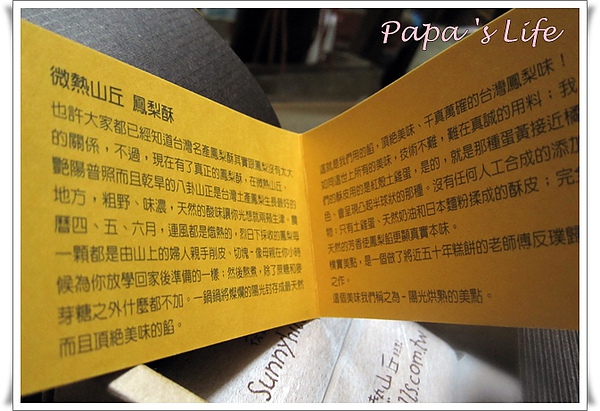 Papa 's Life
微熱山丘 鳳梨酥
也許大家都已經知道台灣名產鳳梨酥其實跟鳳梨沒有太大
的關係，不過，現在有了真正的鳳梨酥，在微熱山丘。
艷陽普照而且乾旱的八卦山正是台灣土產鳳梨生長最好的
地方，粗野、味濃，天然的酸味讓你光想就兩頰生津，農
曆四、五、六月，連風都是燉熱的，烈日下採收的鳳梨每
一顆都是由山上的婦人親手削皮、切塊-像母親在你小時
候為你放學回家後準備的一樣；然後熬煮，除了蔗糖和麥
芽糖之外什麼都不加。一鍋鍋將燦爛的陽光封存成最天然
而且頂絕美味的餡。
這就是我們用的餡，頂絕美味、千真萬確的台灣鳳梨味！
如同這世上所有的美味，技術不難，難在真誠的用料；我
們的酥皮用的是紅殼土雞蛋，是的，就是那種蛋黃接近橘
色、會呈現凸起半球狀的那種。沒有任何人工合成的添加
物，只有土雞蛋、天然奶油和日本麵粉揉成的酥皮；完全
天然的芳香使鳳梨餡更顯真實本味。
樸實美點，是一個做了將近五十年糕餅的老師傅反璞歸
之作。
這個美味我們稱之為-陽光烘熟的美點。
Sunnyhi
熱山丘
ls.com.tw